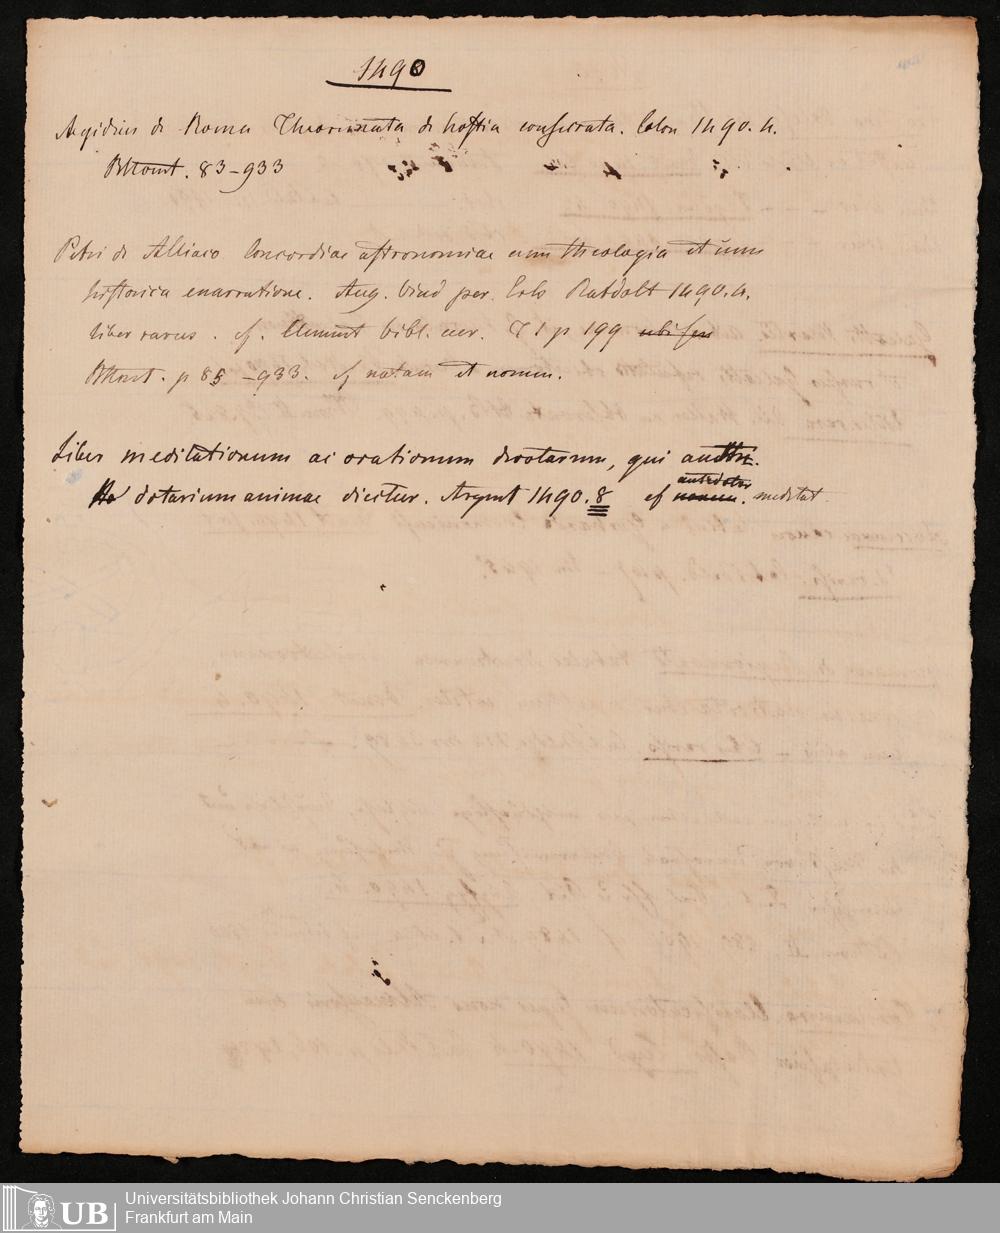 1490
Aegidius de Roma Theoremata de hostia consecrata. Colon 1490. 4.
83-933
Petri de Alliaco Concordiae astronomiae cum theologia et cum
historica enarratione. Aug. Vind per. Erh Ratdolt 1490. 4.
liber rarus. cf. Clement bibl. cur. T 1 p 199
p 85 -933. cf notam et nomen.
Liber meditationum ac orationum devotarum, qui
antidotar
dotarium animae dicitur. Argent 1490. 8 cf meditat
Universitätsbibliothek Johann Christian Senckenberg
Frankfurt am Main
UB